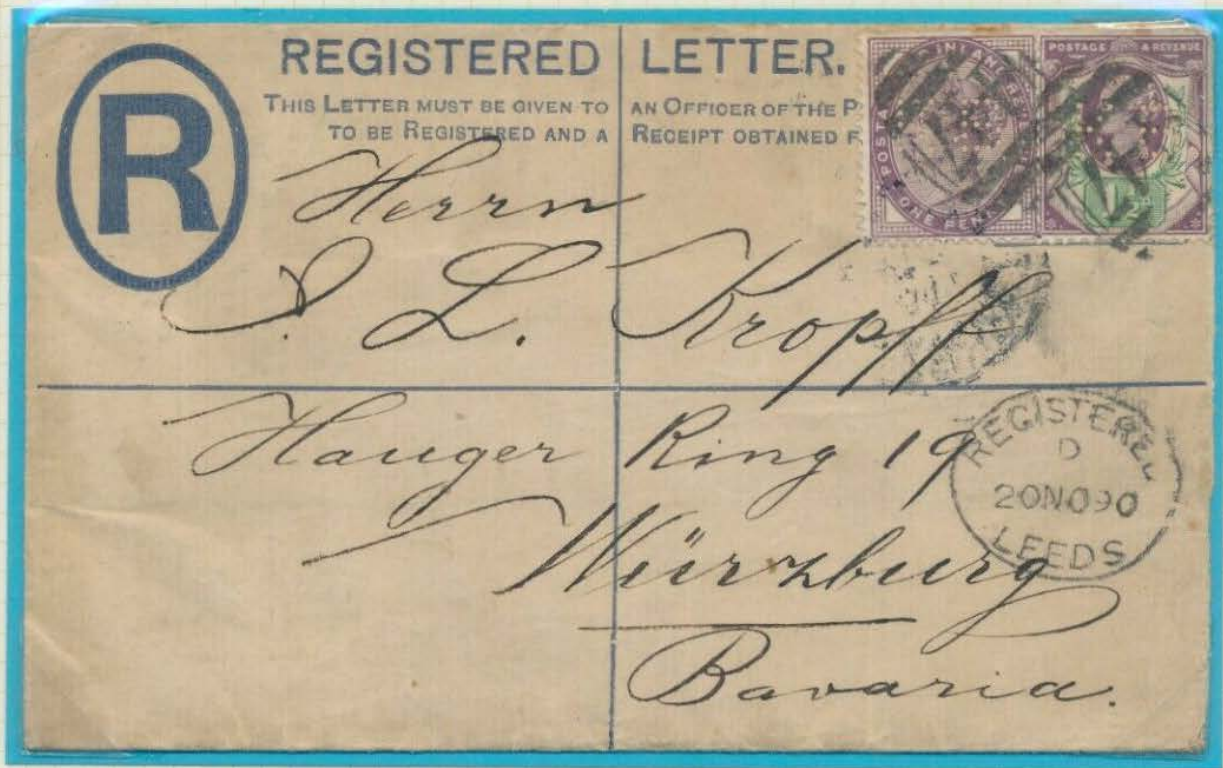 R
REGISTERED LETTER.
THIS LETTER MUST BE GIVEN TO AN OFFICER OF THE P
TO BE REGISTERED AND A RECEIPT OBTAINED F
POSTAGE & REVENUE
ONE PEN
Herrn
J. L. Kropff
Hauger Ring 19
Würzburg
Bavaria.
REGISTERED
D
20NO90
LEEDS